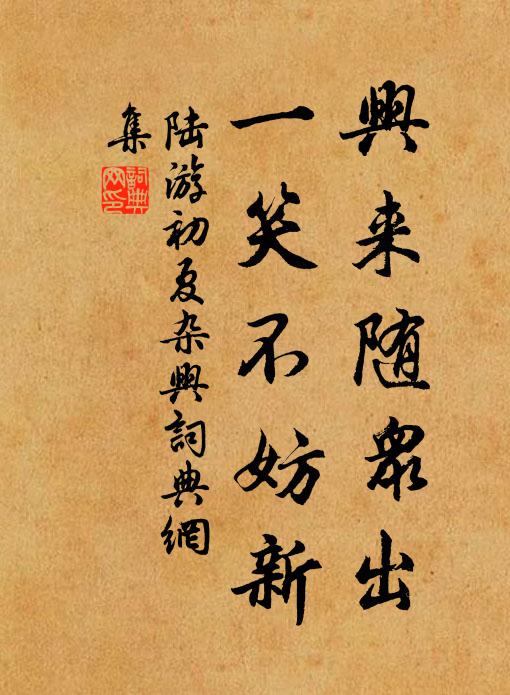 興来随眾出
一笑不妨新
陆游初夏杂興詞典網
集
詞典网印